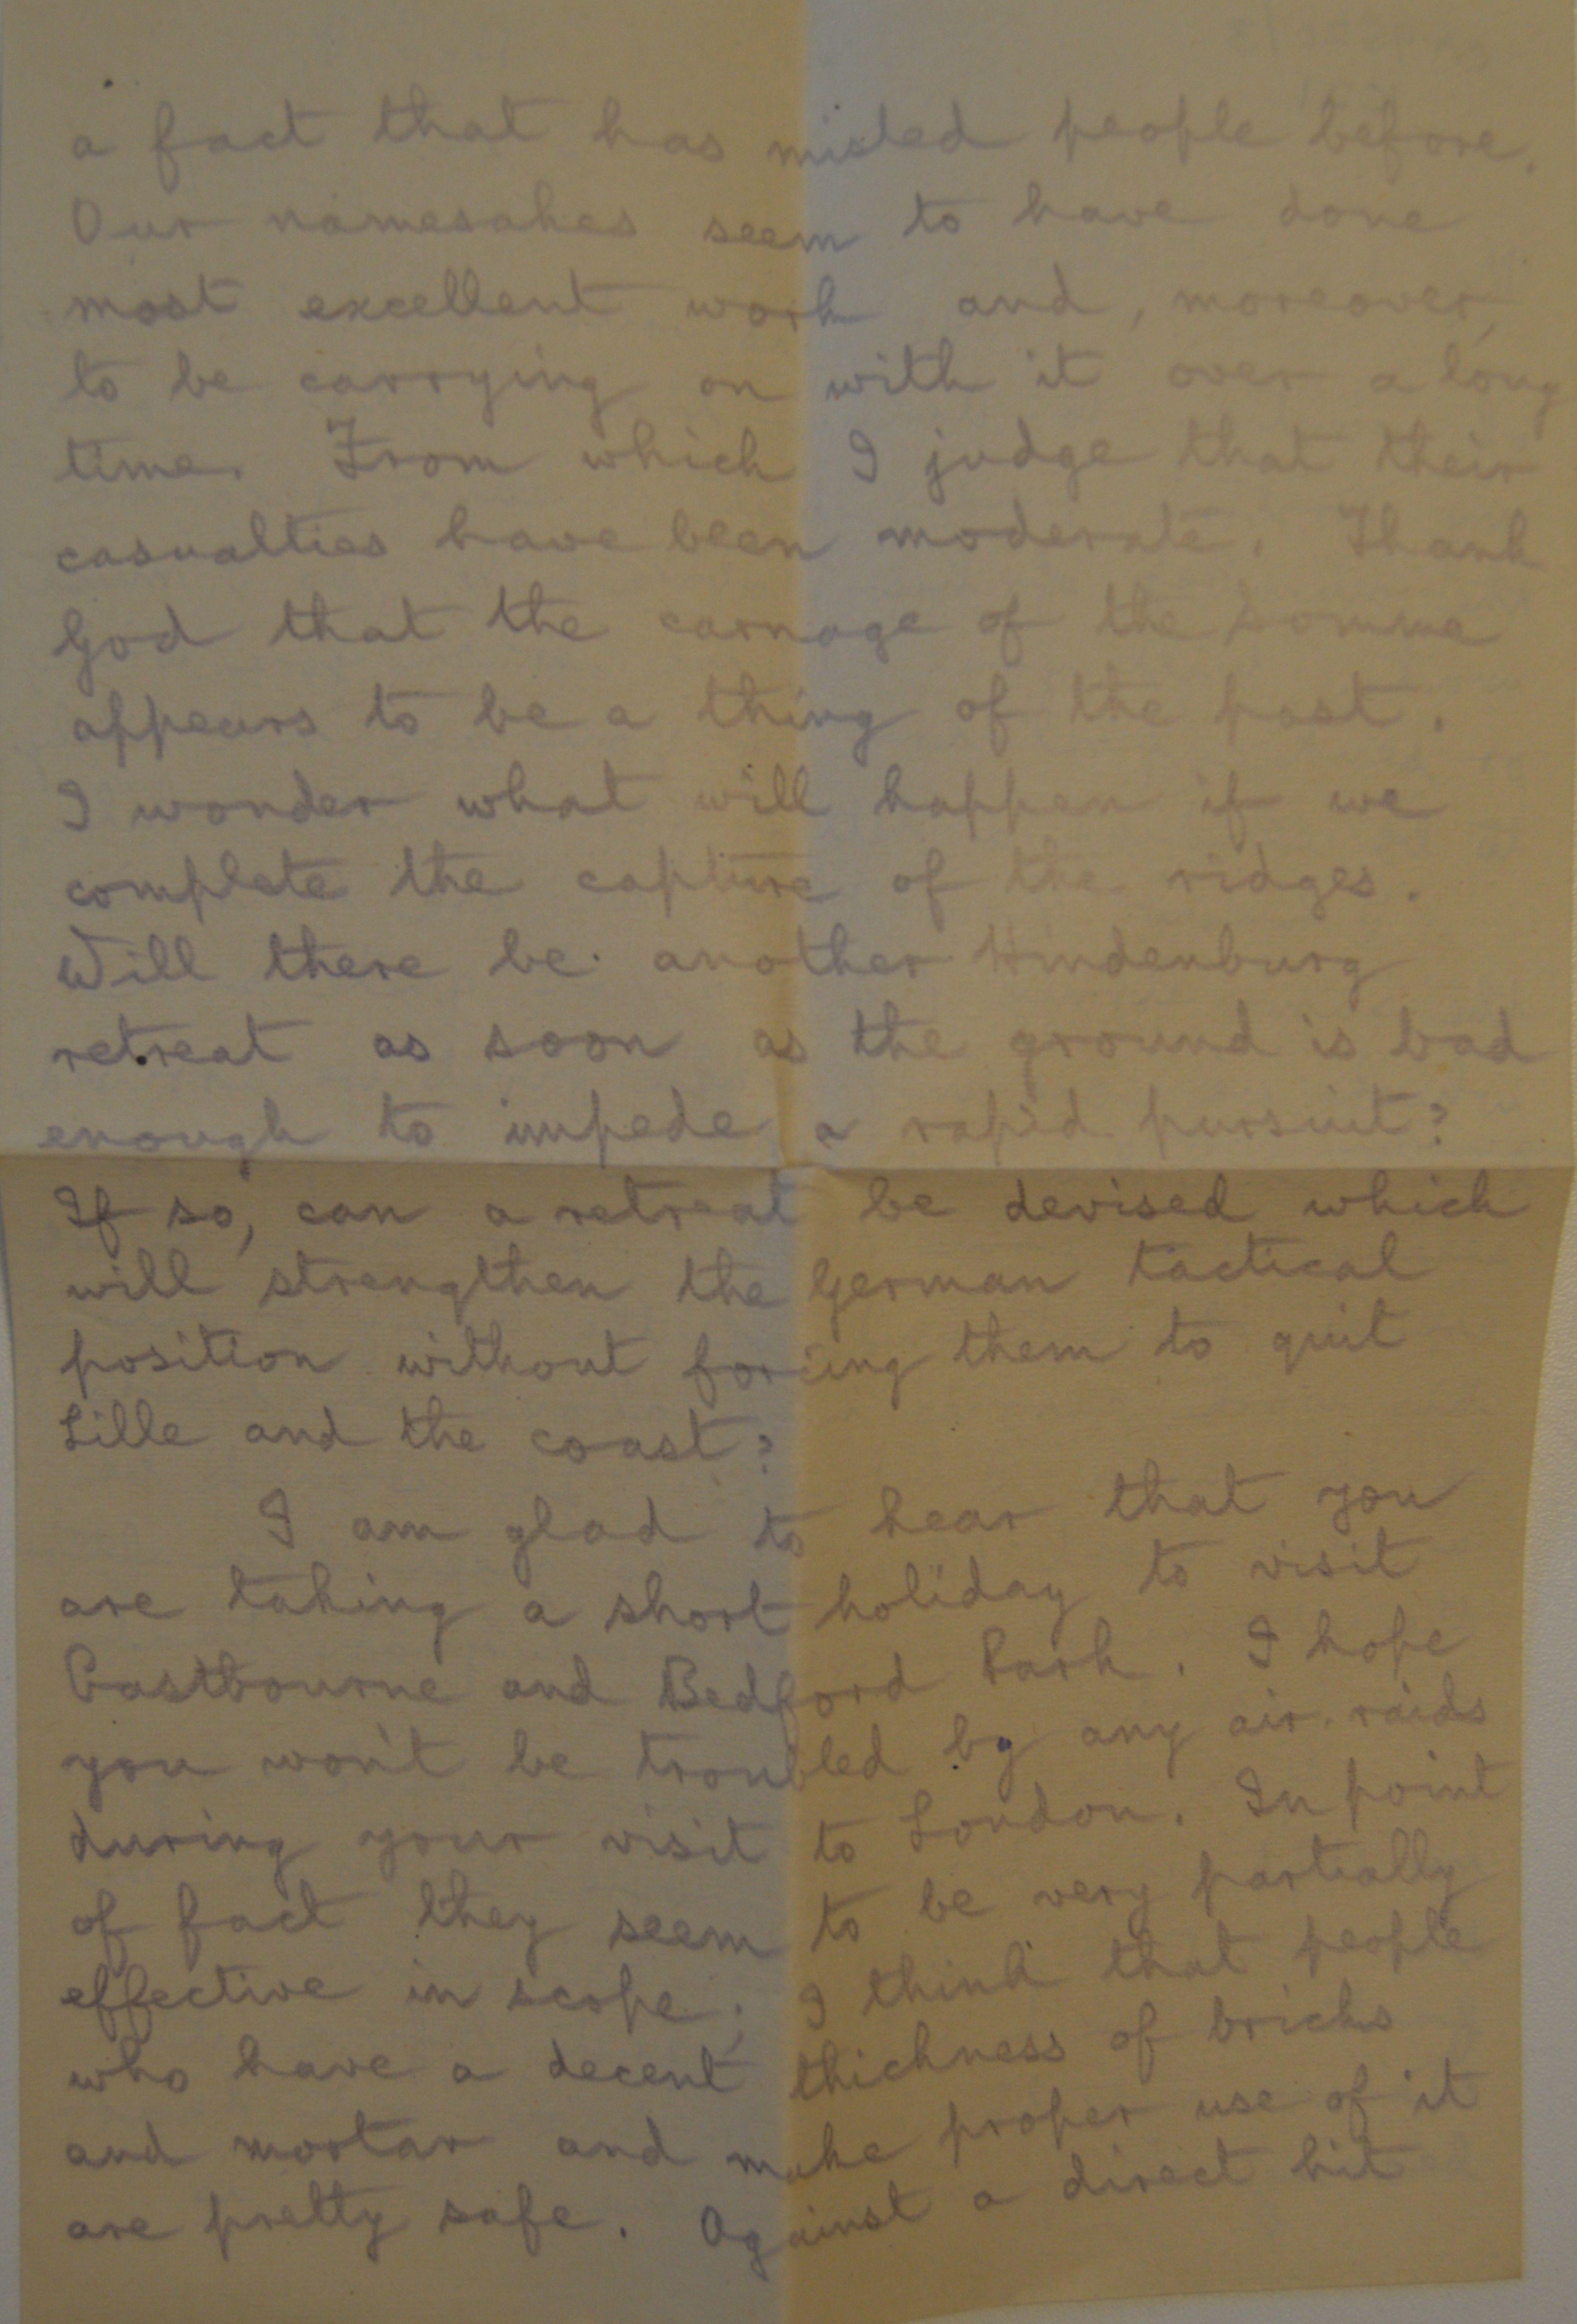 a fact that has misled people before.
Our namesakes seem to have done
most excellent work and, moreover,
to be carrying on with it over a long
time. From which I judge that their
casualties have been moderate. Thank
God that the carnage of the Somme
appears to be a thing of the past.
I wonder what will happen if we
complete the capture of the ridges.
Will there be another Hindenburg
retreat as soon as the ground is bad
enough to impede a rapid pursuit?
If so, can a retreat be devised which
will strengthen the German tactical
position without forcing them to quit
Lille and the coast?
I am glad to hear that you
are taking a short holiday to visit
Eastbourne and Bedford Park. I hope
you won't be troubled by any air-raids
during your visit to London. In point
of fact they seem to be very partially
effective in scope; I think that people
who have a decent thickness of bricks
and mortar and make proper use of it
are pretty safe. Against a direct hit